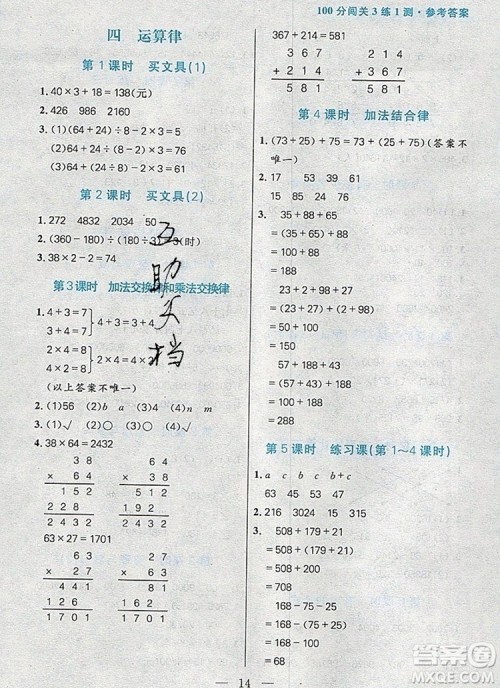 100分闯关3练1测·参考答案
四 运算律
第1课时 买文具(1)
1. 40×3+18=138(元)
2. 426 986 2160
3. (1)(64+24)÷8-2×3=5
(2)(64+24)÷(8-2×3)=44
(3)[(64+24)÷8-2]×3=27
第2课时 买文具(2)
1. 272 4832 2034 50
2. (360-180)÷(240÷4)=3(时)
3. 38×2-2=74
第3课时 加法交换律和乘法交换律
1. 4+3=7
3+4=7
4+3=3+4
2×4=8
4×2=8
2×4=4×2
(以上答案不唯一)
2. (1)56 (2)b a (3)4 (4)n m
3. (1)√ (2)× (3)× (4)√
4. 38×64=2432
3 8
× 6 4
1 5 2
2 2 8
2 4 3 2
6 4
× 3 8
5 1 2
1 9 2
2 4 3 2
63×27=1701
6 3
× 2 7
4 4 1
1 2 6
1 7 0 1
2 7
× 6 3
8 1
1 6 2
1 7 0 1
367+214=581
3 6 7
+ 2 1 4
5 8 1
2 1 4
+ 3 6 7
5 8 1
第4课时 加法结合律
1. (73+25)+75=73+(25+75)(答案不
唯一)
2. 17 53 39 61
15 85 24 76
3. 35+88+65
=35+65+88
=100+88
=188
23+98+57+2
=23+57+(98+2)
=80+100
=180
57+288+43
=57+43+288
=100+288
=388
第5课时 练习课(第1~4课时)
1. a c b c
63 45 53 47
2. 216 3024 315
3. 508+179+21
=508+(179+21)
=508+200
=708
168-75-25
=168-(75+25)
=168-100
=68
互
助
文
档
14
答案圈
MXQE.COM